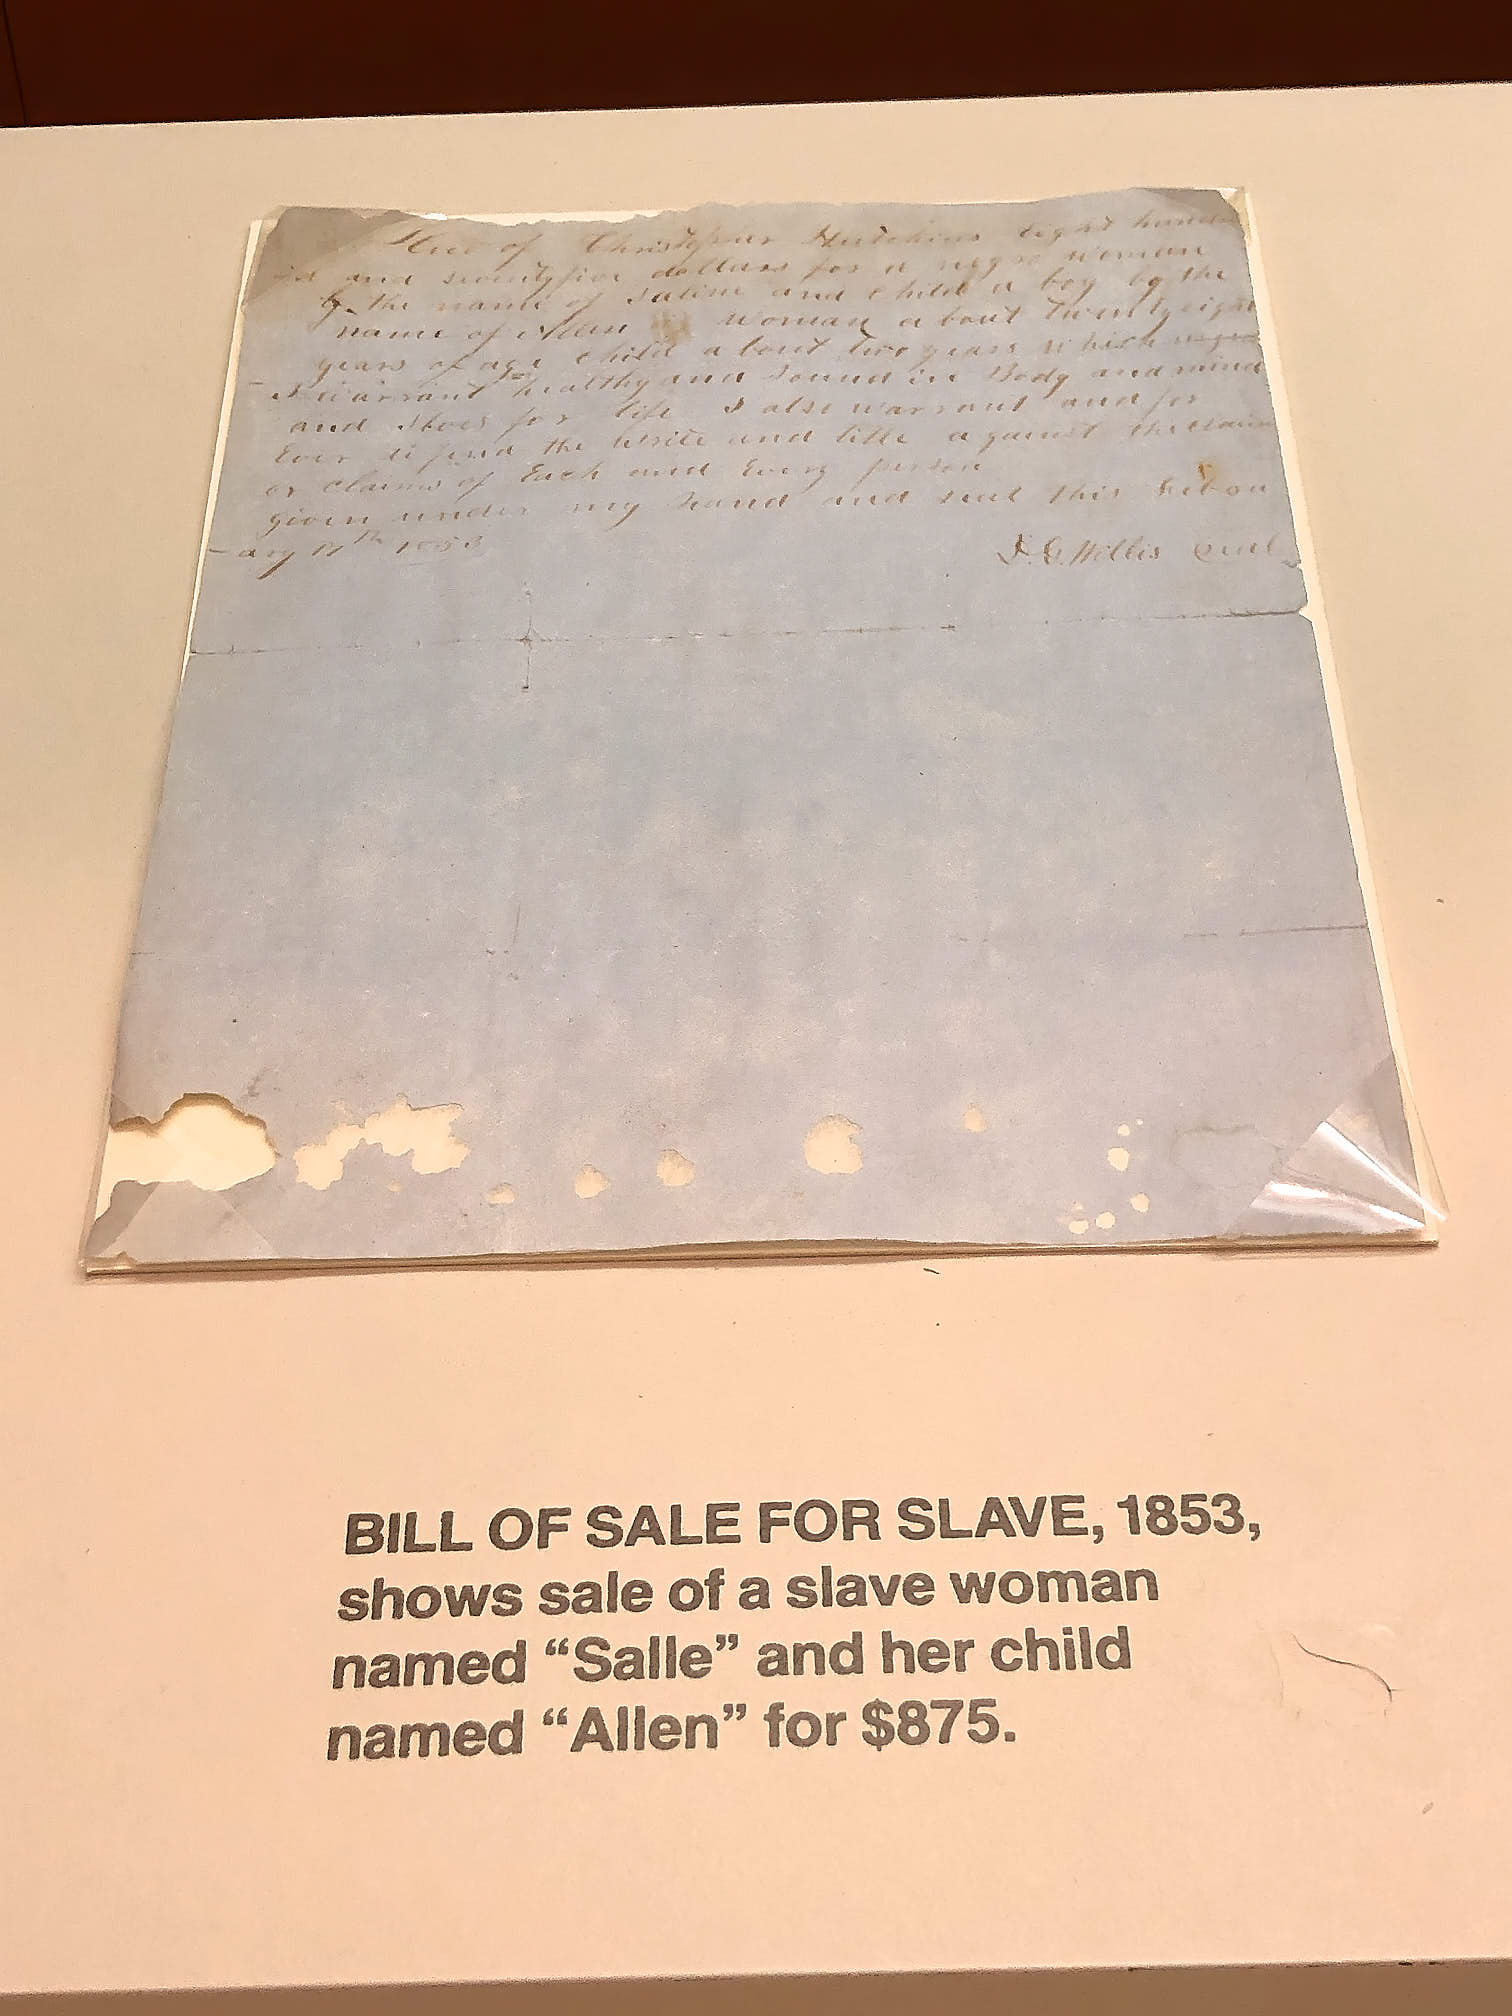 of Christopher Hutchins Eight hundr
ed and seventyfive dollars for a negro woman
by the name of Saline and child a boy by the
name of Allen woman about twentyeight
years of age child about two years which negroes
I warrant healthy and Sound in Body and mind
and Slves for life I also warrant and for
Ever difend the write and title against the claim
or claims of Each and Every person
given under my hand and seal this Febou
-ary 17th 1853
J. G. Willis Seal
BILL OF SALE FOR SLAVE, 1853,
shows sale of a slave woman
named “Salle” and her child
named “Allen” for $875.